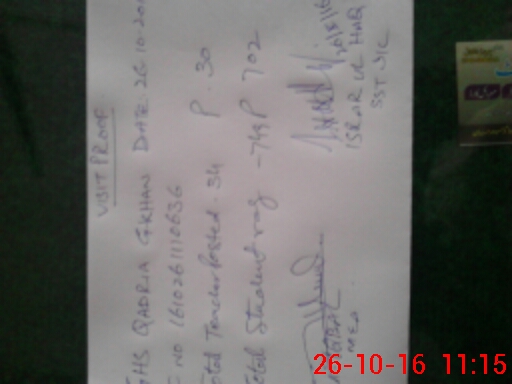 VISIT PROOF
GHS QADRIA GKHAN DATE 26-10-201
NO 161026110636
Total Teacher Posted. 34 P. 30
Total Student reg - 749 P 702
ISRAR UL HAQ
SST I/C
MEA
26-10-16 11:15